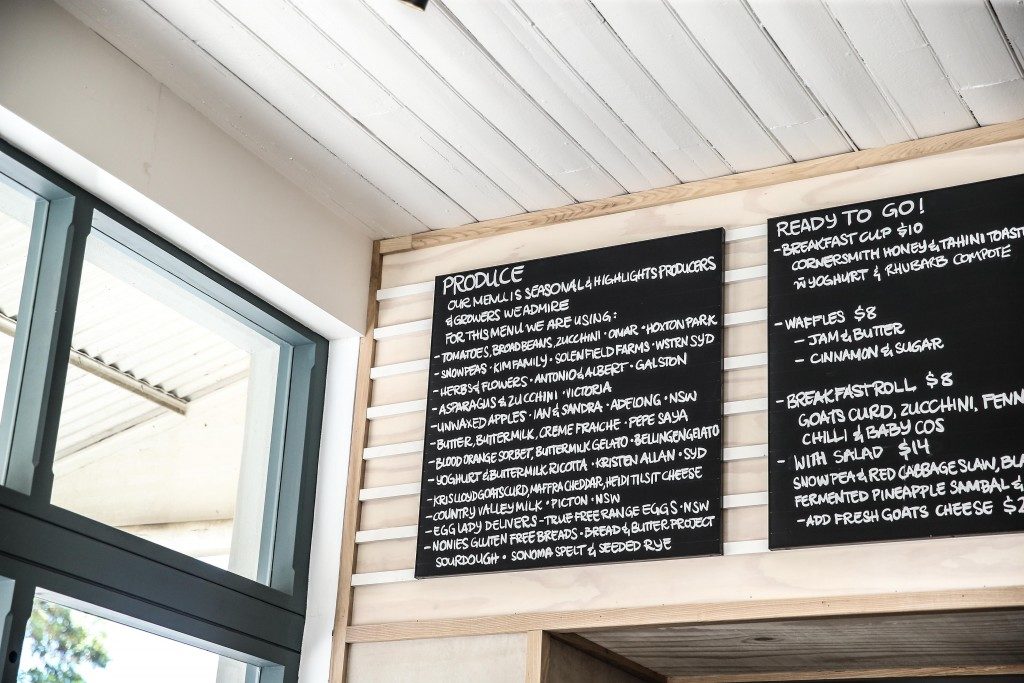 PRODUCE
OUR MENU IS SEASONAL & HIGHLIGHTS PRODUCERS
& GROWERS WE ADMIRE
FOR THIS MENU WE ARE USING:
- TOMATOES, BROAD BEANS, ZUCCHINI • OMAR • HOXTON PARK
- SNOWPEAS • KIM FAMILY • SOLENFIELD FARMS • WSTRN SYD
- HERBS & FLOWERS • ANTONIO & ALBERT • GALSTON
- ASPARAGUS & ZUCCHINI • VICTORIA
- UNWAXED APPLES • IAN & SANDRA • ADELONG • NSW
- BUTTER, BUTTERMILK, CREME FRAICHE • PEPE SAYA
- BLOOD ORANGE SORBET, BUTTERMILK GELATO • BELLINGEN GELATO
- YOGHURT & BUTTERMILK RICOTTA • KRISTEN ALLAN • SYD
- KRIS LLOYD GOATS CURD, MAFFRA CHEDDAR, HEIDI TILSIT CHEESE
- COUNTRY VALLEY MILK • PICTON • NSW
- EGG LADY DELIVERS - TRUE FREE RANGE EGGS • NSW
- NONIES GLUTEN FREE BREADS • BREAD & BUTTER PROJECT
SOURDOUGH • SONOMA SPELT & SEEDED RYE
READY TO GO!
- BREAKFAST CUP $10
CORNERSMITH HONEY & TAHINI TOAST
W YOGHURT & RHUBARB COMPOTE
- WAFFLES $8
- JAM & BUTTER
- CINNAMON & SUGAR
- BREAKFAST ROLL $8
GOATS CURD, ZUCCHINI, FENN
CHILLI & BABY COS
- WITH SALAD $14
SNOWPEA & RED CABBAGE SLAW, BLA
FERMENTED PINEAPPLE SAMBAL &
- ADD FRESH GOATS CHEESE $2